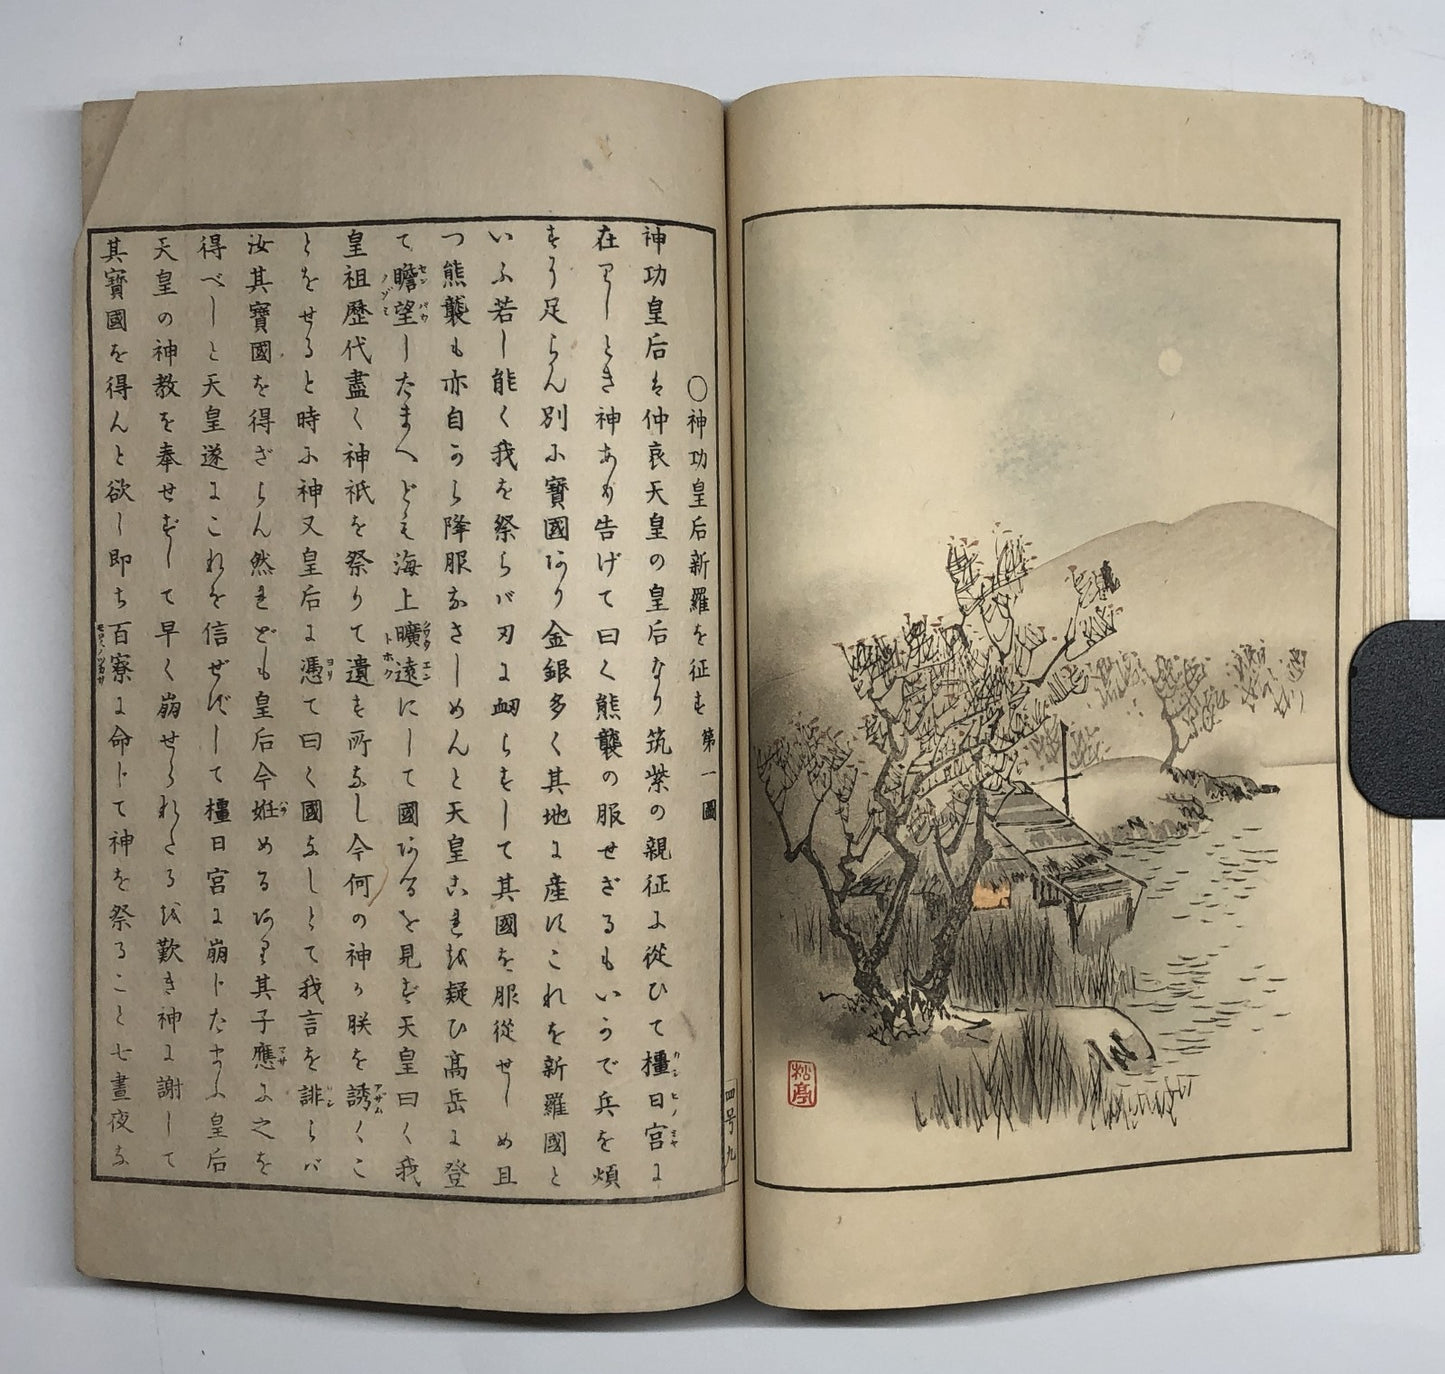 松亭
○神功皇后新羅を征す 第一圖
神功皇后は仲哀天皇の皇后なり筑紫の親征に從ひて橿日宮に
在りしとき神あり告げて曰く熊襲の服せざるもいかで兵を煩
すに足らん別に寶國あり金銀多く其地に産すこれを新羅國と
いふ若し能く我を祭らバ刃に衂らずして其國を服從せしめ且
つ熊襲も亦自から降服なさしめんと天皇これを疑ひ高岳に登
て瞻望したまへども海上曠遠にして國あるを見ず天皇曰く我
皇祖歷代盡く神祇を祭りて遺す所なし今何の神か朕を誘くこ
とをせると時に神又皇后に憑て曰く國なしとて我言を誹らバ
汝其寶國を得ざらん然れども皇后今姙めるあり其子應に之を
得べしと天皇遂にこれを信ぜずして橿日宮に崩じたまふ皇后
天皇の神教を奉せずして早く崩せられたるを歎き神に謝して
其寶國を得んと欲し即ち百寮に命じて神を祭ること七晝夜な
四号 九